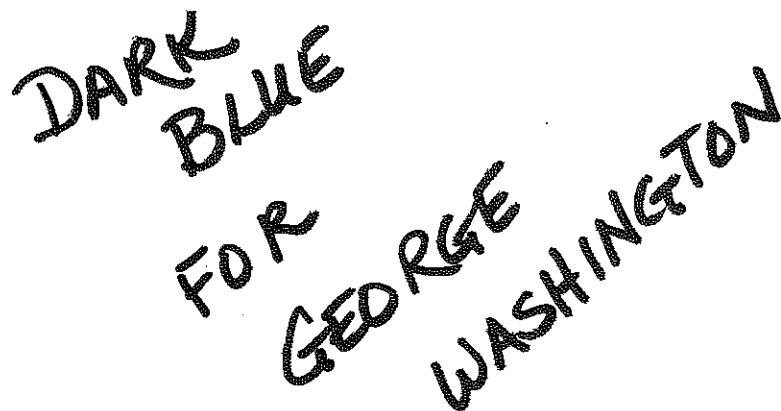 DARK
BLUE
FOR
GEORGE
WASHINGTON